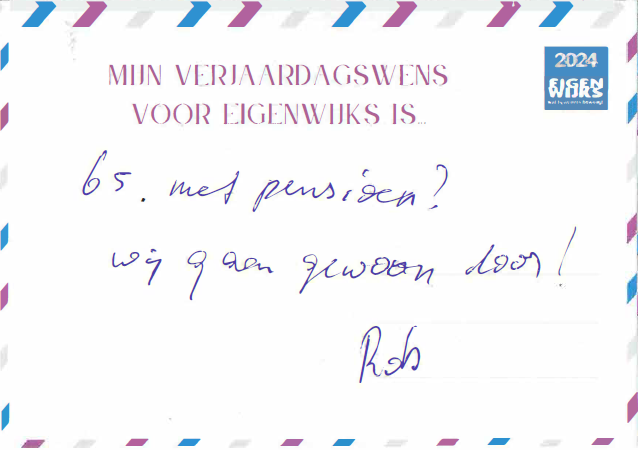 MIJN VERJAARDAGSWENS
VOOR EIGENWIJKS IS...
2024
EIGEN
WIJKS
65. met pensioen?
wij gaan gewoon door!
Rob